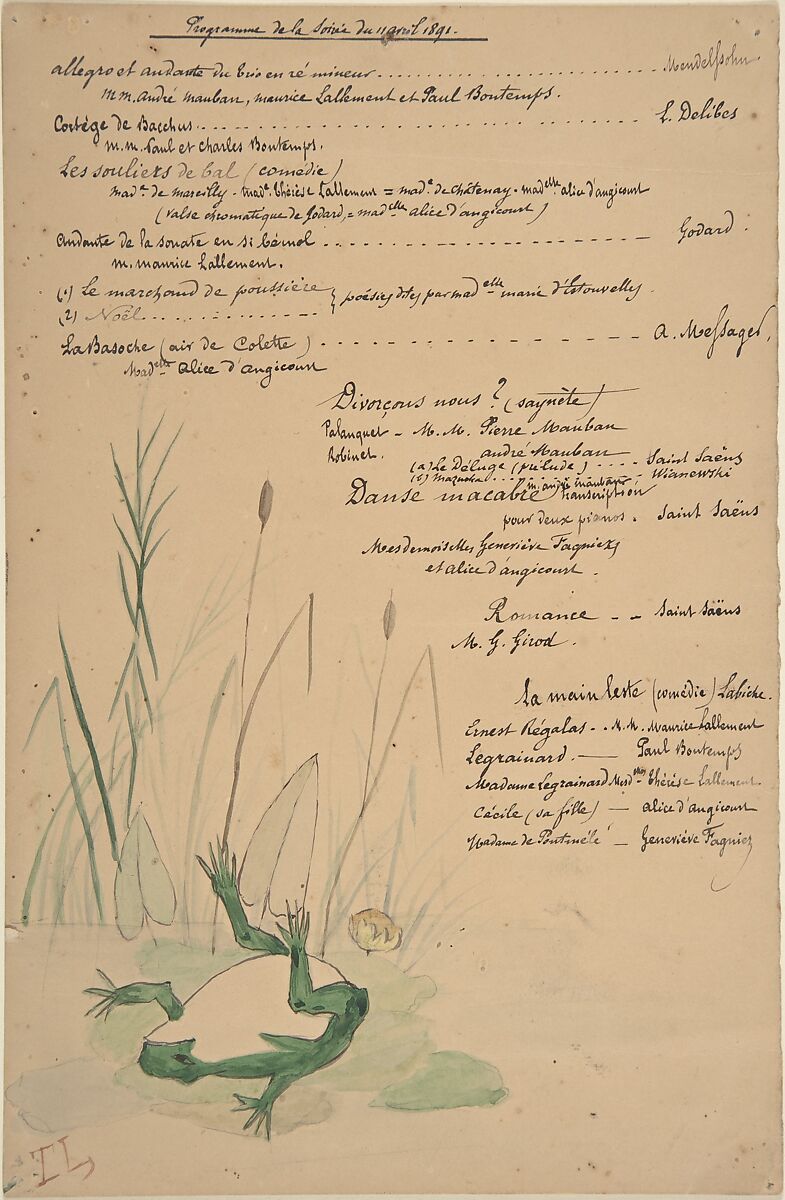 Programme de la Soirée du 11 avril 1891.
allegro et andante du trio en ré mineur ........ Mendelssohn
m.m. André Mauban, maurice Lallement et Paul Bontemps.
Cortège de Bacchus ........ L. Delibes
m.m. Paul et Charles Bontemps.
Les souliers de bal (comédie)
mad.e de marcilly - mad.e Thérèse Lallement = mad.e de châtenay - madelle alice d'angicourt
(valse chromatique de Godard, = madelle alice d'angicourt)
Andante de la sonate en si bémol ........ Godard.
m. maurice Lallement.
(1) Le marchand de poussière } poésies dites par madelle marie d'Estouvelles.
(2) Noël ........
La Basoche (air de Colette) ........ A. Messager,
Madelle alice d'angicourt
Divorçons nous? (saynète)
Palanquet - M.M. Pierre Mauban
Robinet. andré Mauban
(a) Le Déluge (prélude) .... Saint Saëns
(b) Mazurka .... Wianewski
m. andré mauban
Danse macabre transcription
pour deux pianos. Saint Saëns
Mesdemoiselles Geneviève Fagniez
et alice d'angicourt.
Romance - - Saint Saëns
M. G. Girod.
La main leste (comédie) Labiche.
Ernest Régalas - . M.M. Maurice Lallement
Legrainard. — Paul Bontemps
Madame Legrainard Mesdmes Thérèse Lallement
Cécile (sa fille) — alice d'angicourt
Madame de Pontmêlé — Geneviève Fagniez
TL